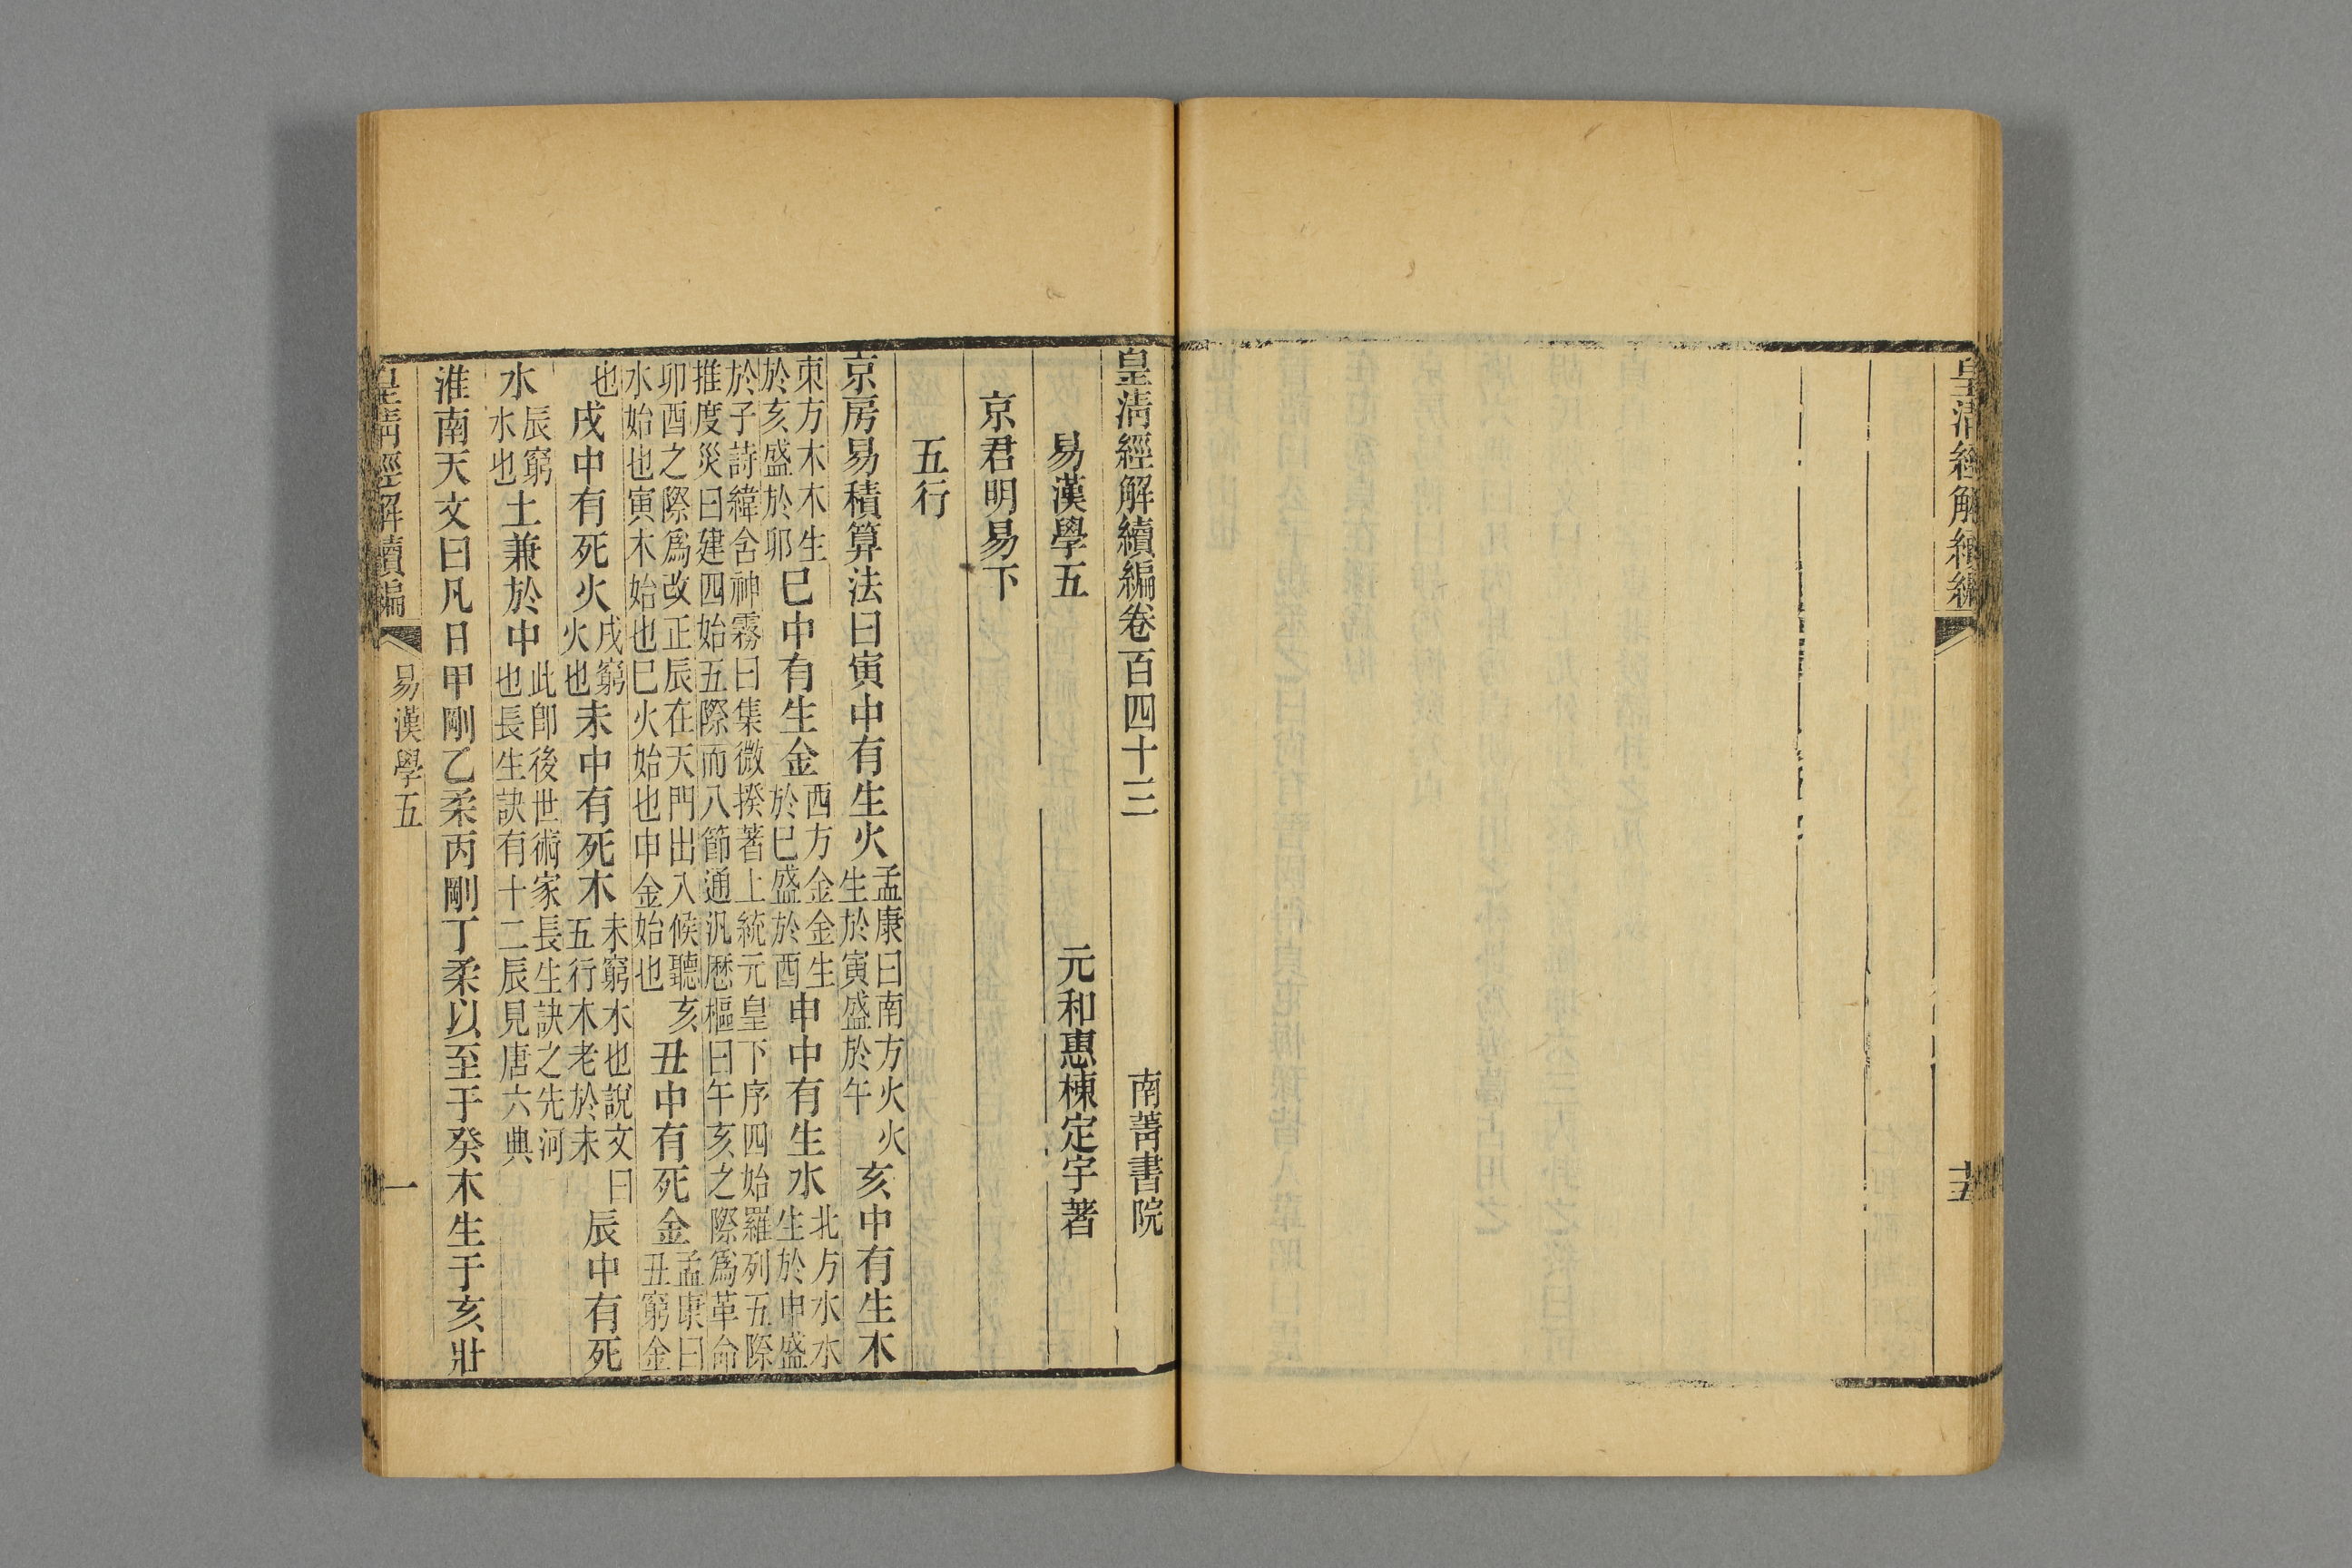 皇清經解續編 十五
皇清經解續編卷百四十三 南菁書院
易漢學五 元和惠棟定宇著
京君明易下
五行
京房易積算法曰寅中有生火孟康曰南方火火生於寅盛於午亥中有生木
東方木木生於亥盛於卯巳中有生金西方金金生於巳盛於酉申中有生水北方水水生於申盛
於子詩緯含神霧曰集微揆著上統元皇下序四始羅列五際推度災曰建四始五際而八節通汎厯樞曰午亥之際爲革命
卯酉之際爲改正辰在天門出入候聽亥水始也寅木始也巳火始也申金始也丑中有死金孟康曰丑窮金
也戌中有死火戌窮火也未中有死木未窮木也說文曰五行木老於未辰中有死
水辰窮水也土兼於中此卽後世術家長生訣之先河也長生訣有十二辰見唐六典
淮南天文曰凡日甲剛乙柔丙剛丁柔以至于癸木生于亥壯
皇清經解續編 易漢學五 一